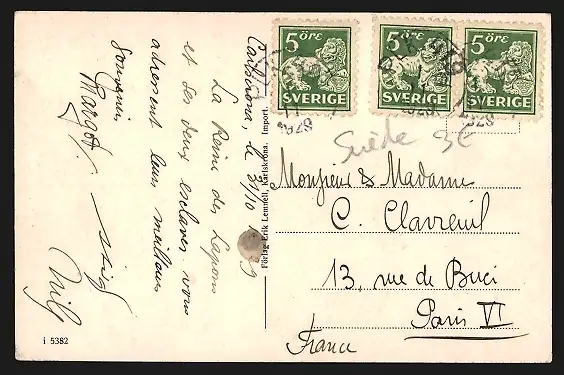 Carlskrona, le 31/10
La Reine des Lapons
et ses deux esclaves vous
adressent leurs meilleurs
Souvenirs
Margot. Stig
Nils
i 5382
Förlag Erik Lemnell, Karlskrona. Import.
5 ÖRE
SVERIGE
5 ÖRE
SVERIGE
5 ÖRE
SVERIGE
Suède 3€
Monsieur & Madame
C. Clavreuil
13, rue de Buci
Paris VI
France